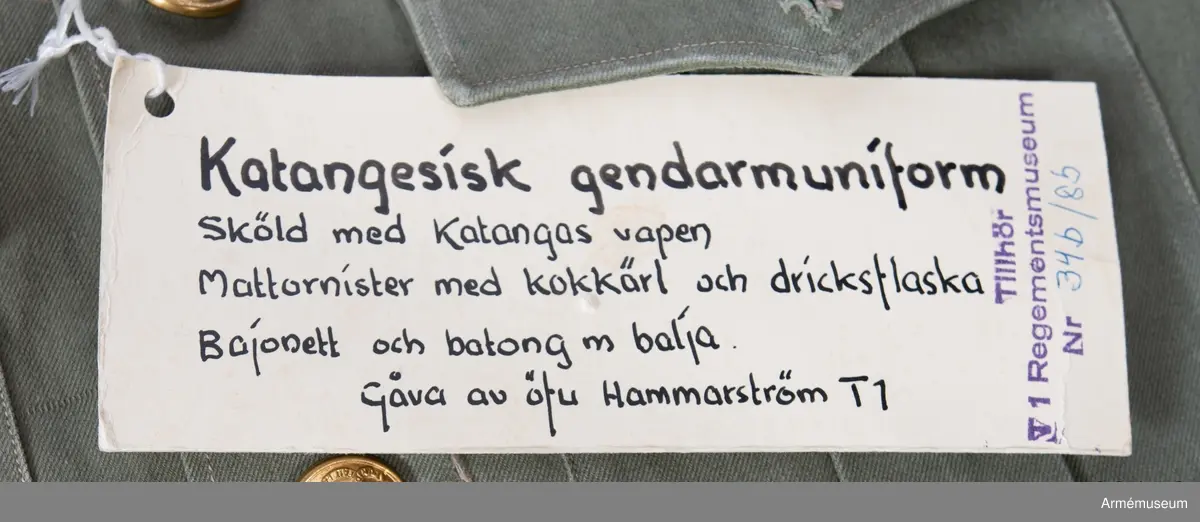 Katangesisk gendarmuniform
Sköld med Katangas vapen
Mattornister med kokkärl och dricksflaska
Bajonett och batong m balja.
Gåva av öfu Hammarström T1
Tillhör
1 Regementsmuseum
Nr 34b/85
Armémuseum